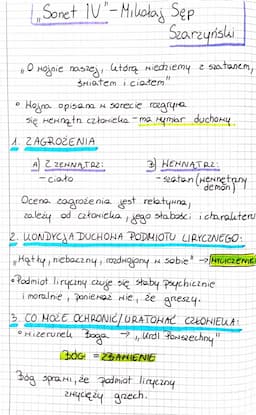 „Sonet IV" - Mikołaj Sęp
Szarzyński
„O wojnie naszej, którą wiedziemy z szatanem,
światem i ciałem"
• Wojna opisana w sonecie rozgrywa
się wewnątrz człowieka - ma wymiar duchowy
1. ZAGROŻENIA
A) Z ZEWNĄTRZ:
B) WEWNĄTRZ:
- ciało
- szatan (wewnętrzny
demon)
Ocena zagrożenia jest relatywna,
zależy od człowieka, jego słabości i charakteru
2. KONDYCJA DUCHOWA PODMIOTU LIRYCZNEGO:
„Wątły, niebaczny, rozdwojony w sobie" → WYLICZENIE
• Podmiot liryczny czuje się słaby psychicznie
i moralnie, ponieważ wie, że grzeszy.
3. CO MOŻE OCHRONIĆ / URATOWAĆ CZŁOWIEKA:
• wizerunek Boga → „Król Powszechny"
BÓG = ZBAWIENIE
Bóg sprawi, że podmiot liryczny
zwycięży grzech.